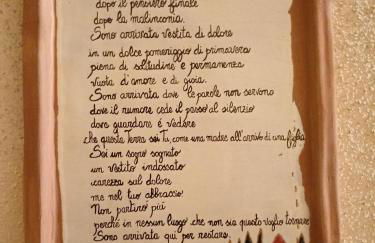 dopo il pensiero finale
dopo la malinconia.
Sono arrivata vestita di dolore
in un dolce pomeriggio di primavera
piena di solitudine e permanenza
vuota d'amore e di gioia.
Sono arrivata dove le parole non servono
dove il rumore cede il passo al silenzio
dove guardare é vedere
che questa Terra sei Tu, come una madre all'arrivo di una figlia.
Sei un sogno sognato
un vestito indossato
carezza sul dolore
me nel tuo abbraccio
Non partiró piú
perché in nessun luogo che non sia questo voglio tornare
Sono arrivata qui per restare.